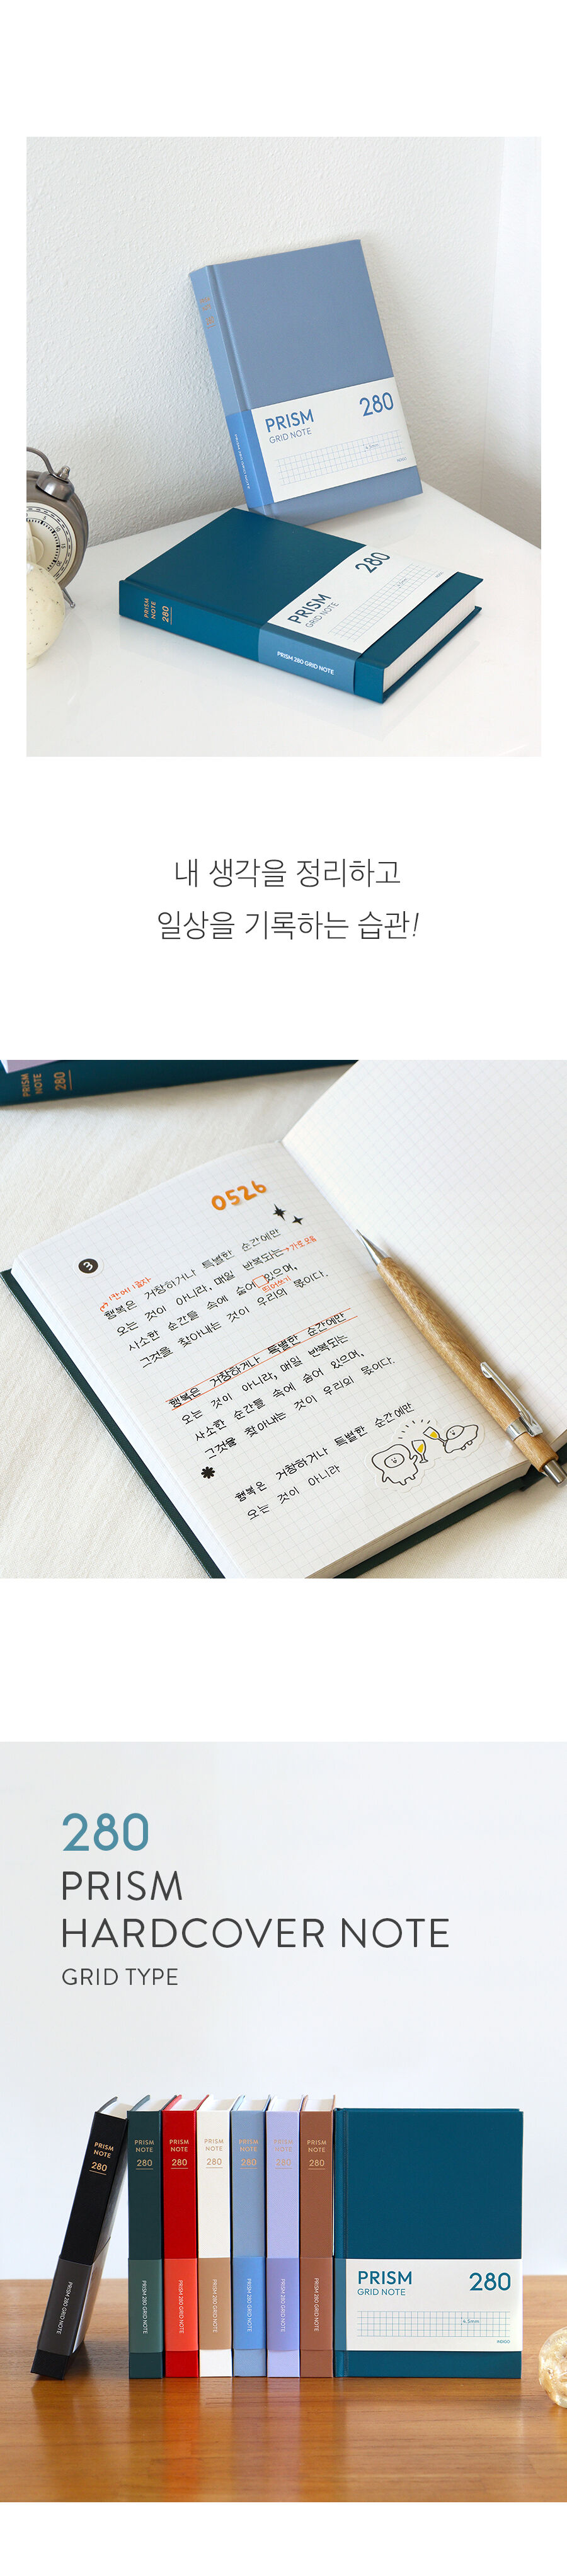 PRISM
GRID NOTE
280
PRISM 280 GRID NOTE
PRISM
NOTE
280
PRISM
GRID NOTE
280
PRISM 280 GRID NOTE
내 생각을 정리하고
일상을 기록하는 습관!
PRISM
NOTE
280
0526
3
행복은 거창하거나 특별한 순간에만
오는 것이 아니라, 매일 반복되는
가로 모음
사소한 순간들 속에 숨어 있으며,
띄어쓰기
그것을 찾아내는 것이 우리의 몫이다.
행복은 거창하거나 특별한 순간에만
오는 것이 아니라, 매일 반복되는
사소한 순간들 속에 숨어 있으며,
그것을 찾아내는 것이 우리의 몫이다.
행복은 거창하거나 특별한 순간에만
오는 것이 아니라
280
PRISM
HARDCOVER NOTE
GRID TYPE
PRISM
NOTE
280
PRISM 280 GRID NOTE
PRISM
NOTE
280
PRISM 280 GRID NOTE
PRISM
NOTE
280
PRISM 280 GRID NOTE
PRISM
NOTE
280
PRISM 280 GRID NOTE
PRISM
NOTE
280
PRISM 280 GRID NOTE
PRISM
NOTE
280
PRISM 280 GRID NOTE
PRISM
NOTE
280
PRISM 280 GRID NOTE
PRISM
GRID NOTE
280
4.5mm
INDIGO